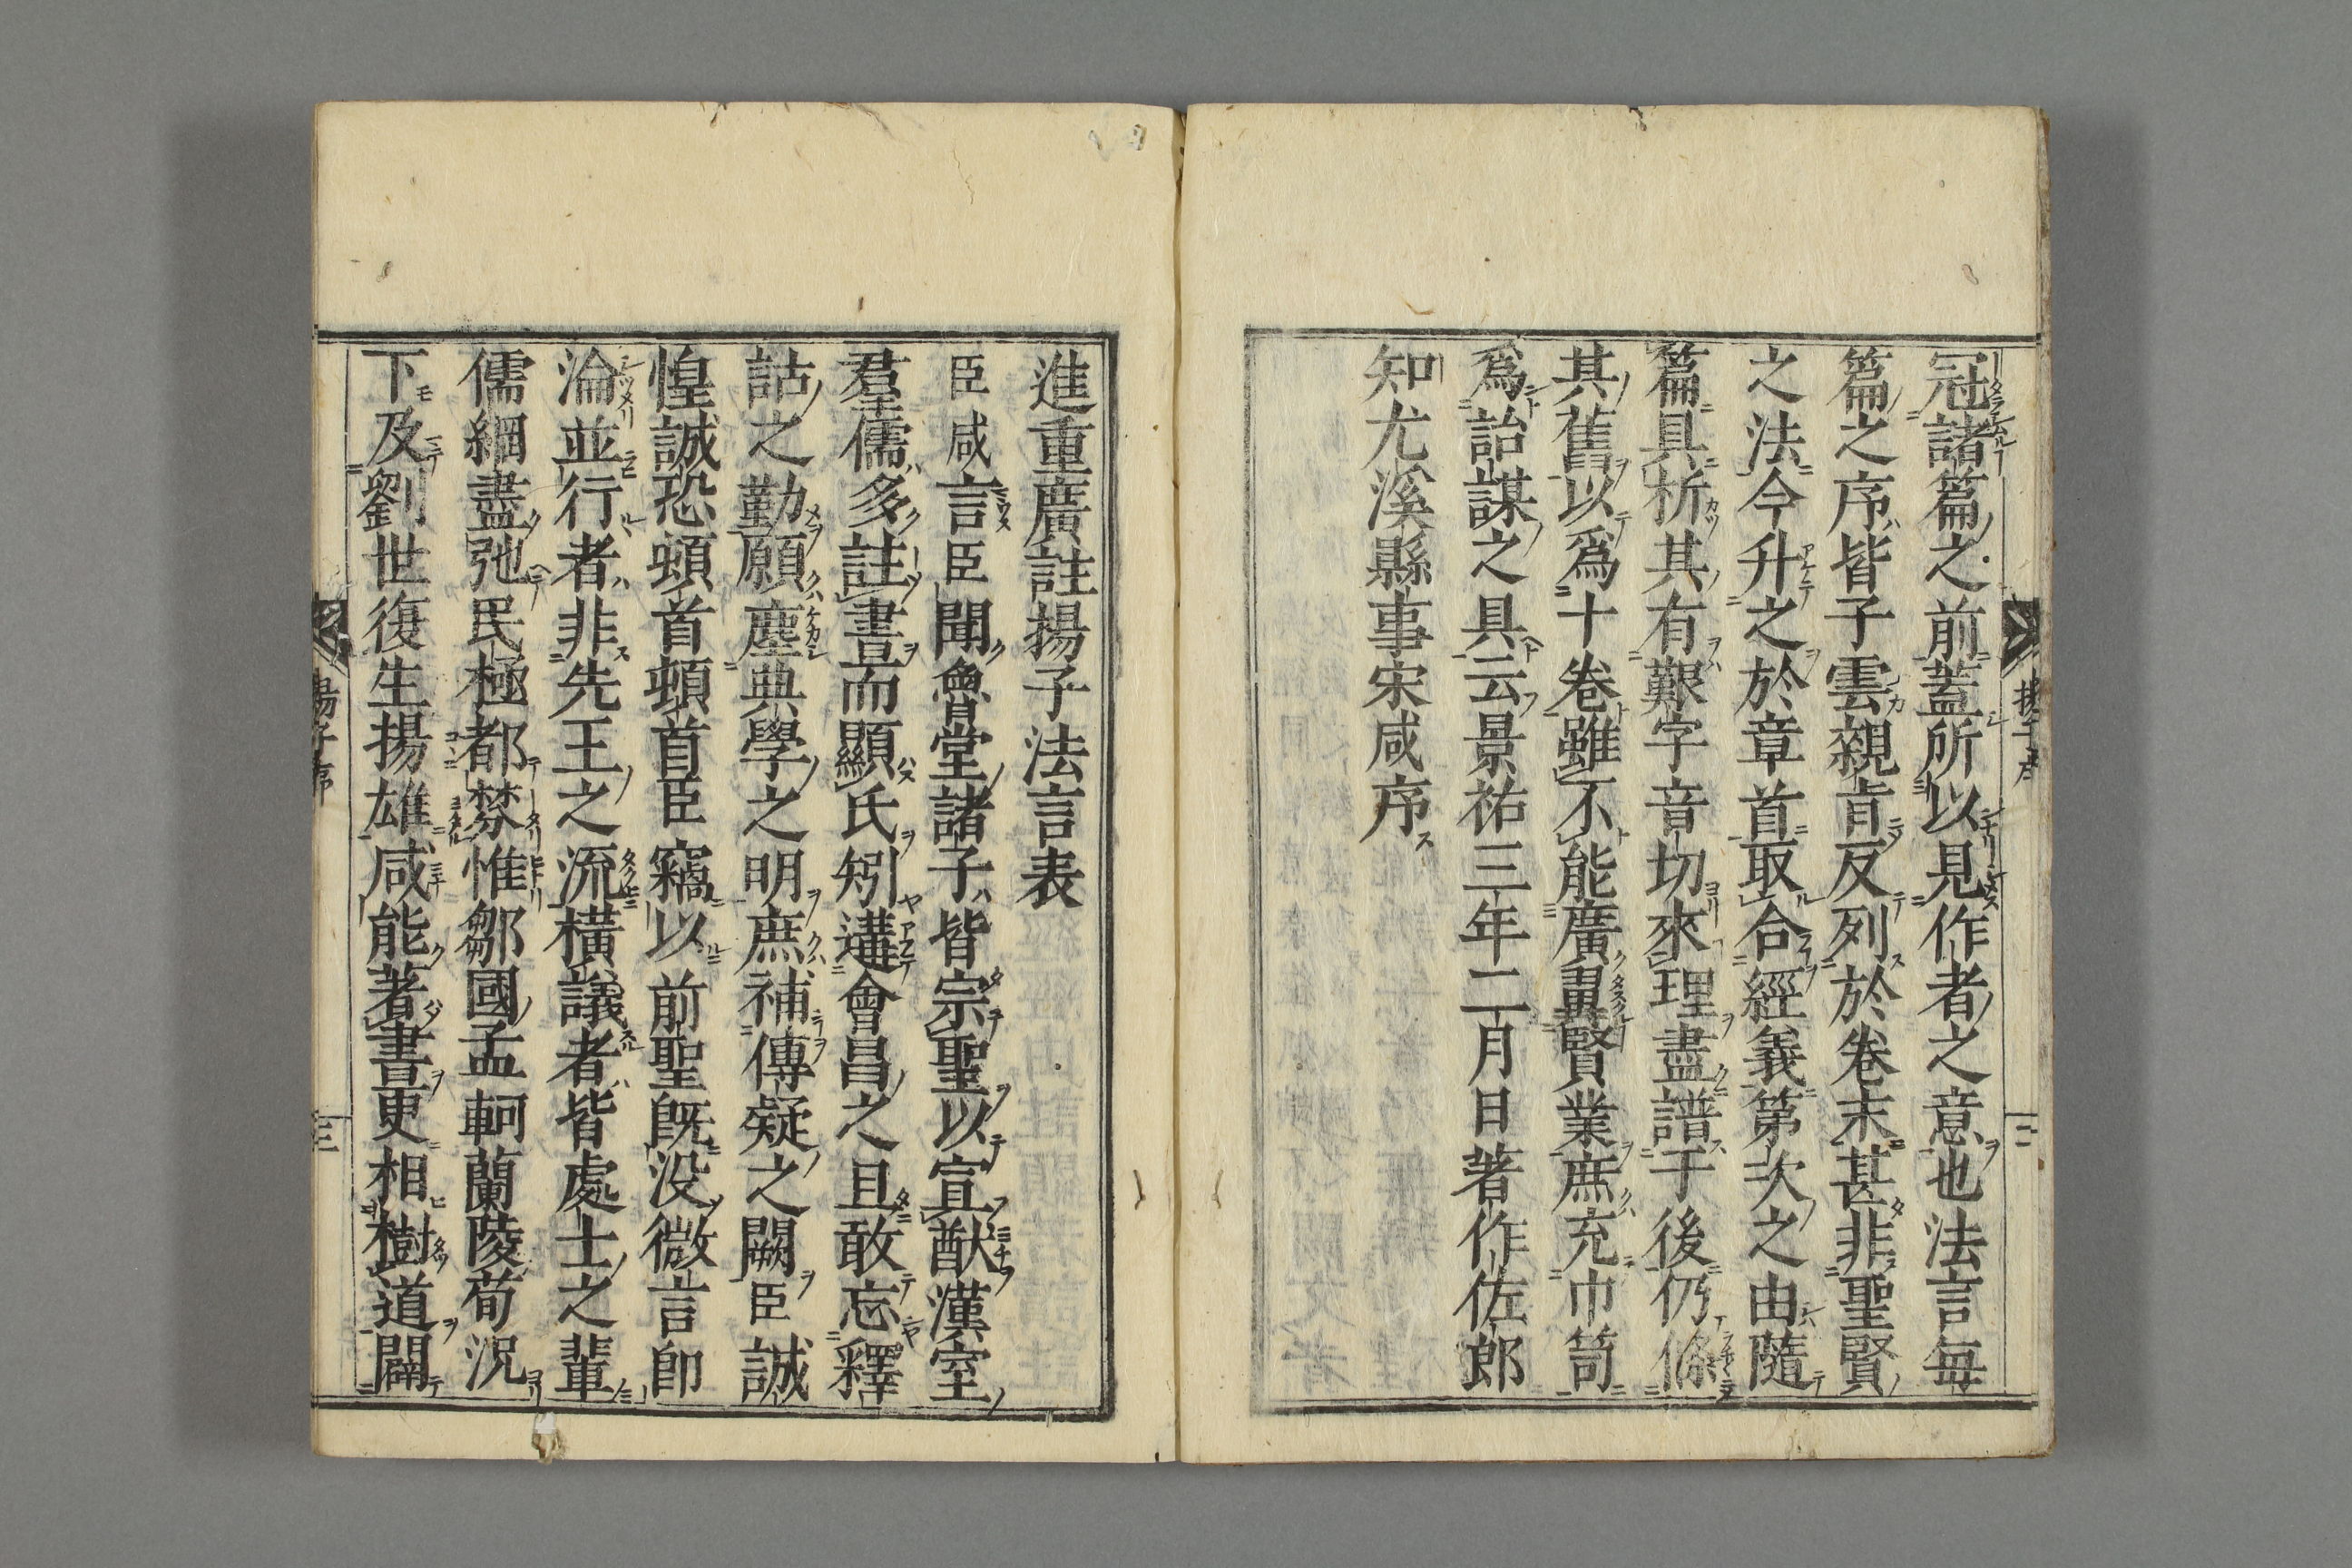 冠諸篇之前蓋所以見作者之意也法言每
篇之序皆子雲親肯反列於卷末甚非聖賢
之法今升之於章首取合經義第次之由隨
篇具析其有艱字音切來理盡譜于後仍條
其舊以爲十卷雖不能廣畢賢業庶充巾笥
爲詒謀之具云景祐三年二月日著作佐郎
知尤溪縣事宋咸序
進重廣註揚子法言表
臣咸言臣聞魯堂諸子皆宗聖以宣猷漢室
羣儒多註書而顯氏矧遘會昌之且敢忘釋
詁之勤願塵典學之明庶補傳疑之闕臣誠
惶誠恐頓首頓首臣竊以前聖旣没微言卽
淪並行者非先王之流橫議者皆處士之輩
儒綱盡弛民極都棼惟鄒國孟軻蘭陵荀況
下及劉世復生揚雄咸能著書更相樹道闢
揚子序
三